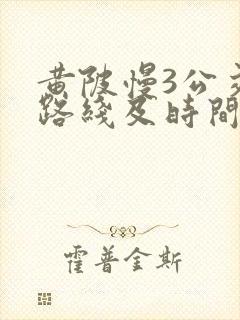 黄陂慢3公交
路綫及時間
霍普金斯